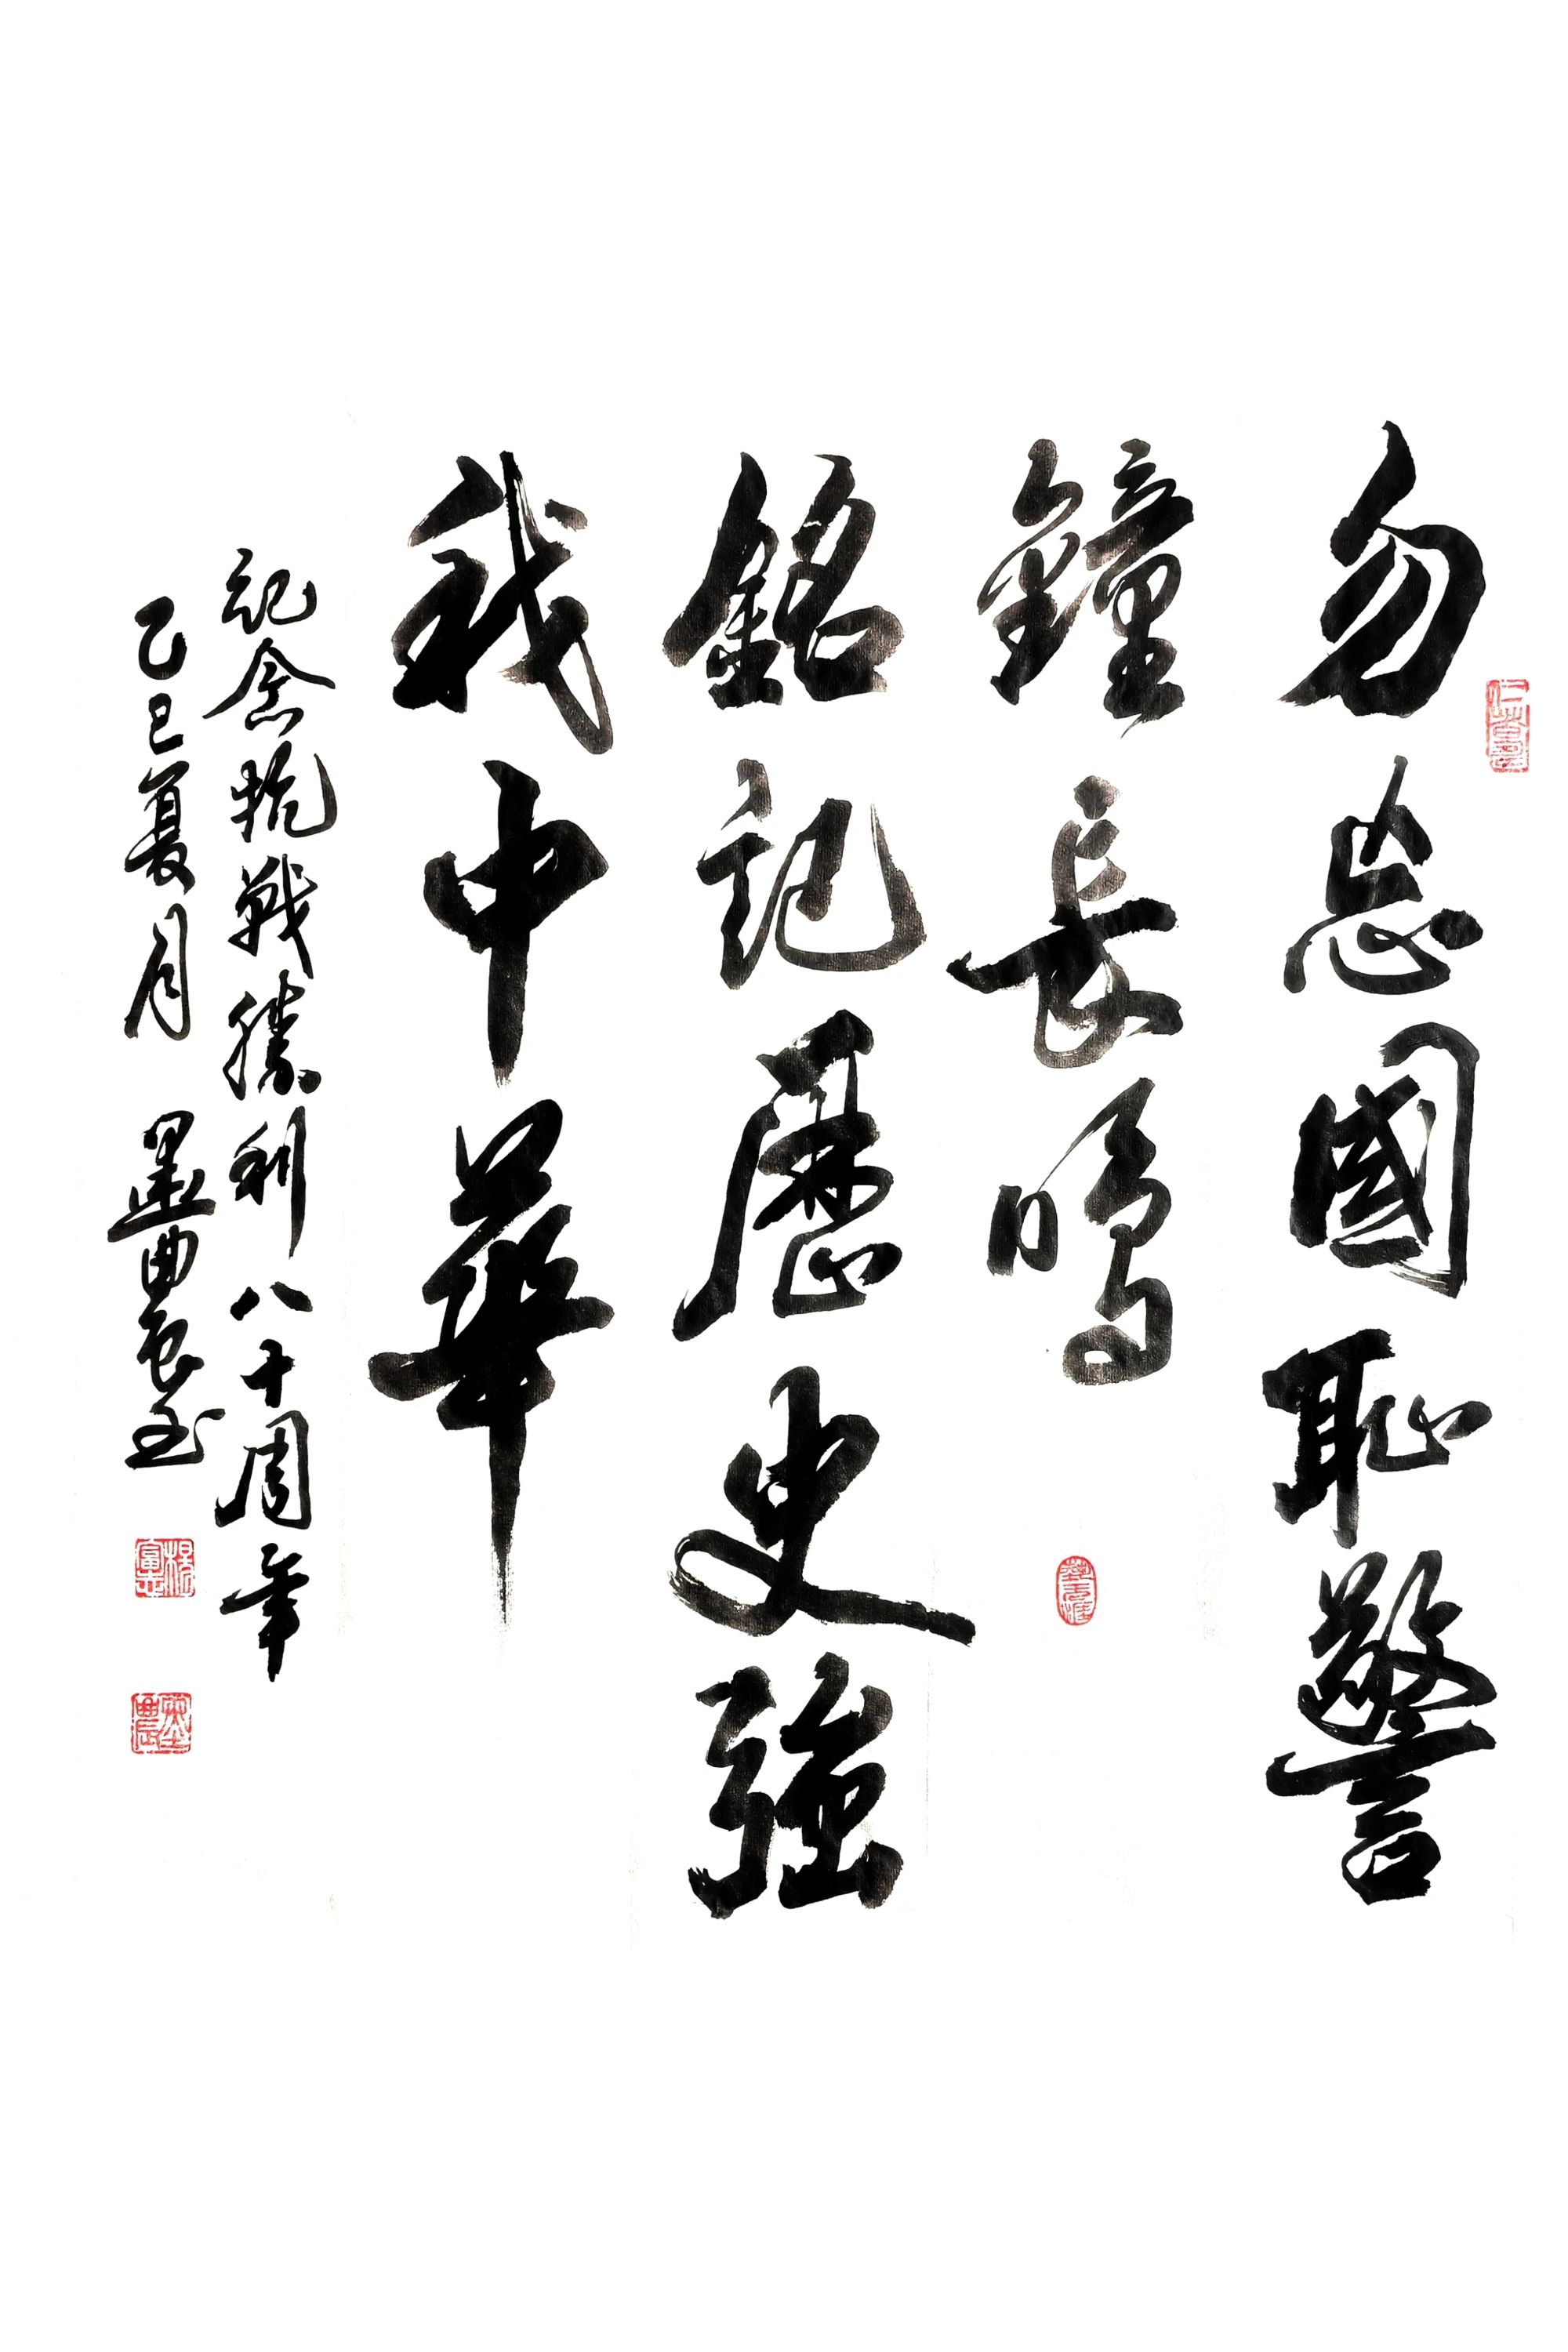 勿忘國恥警
鐘長鳴
銘記歷史強
我中華
紀念抗戰勝利八十周年
乙巳夏月 墨農書
楊富
墨農